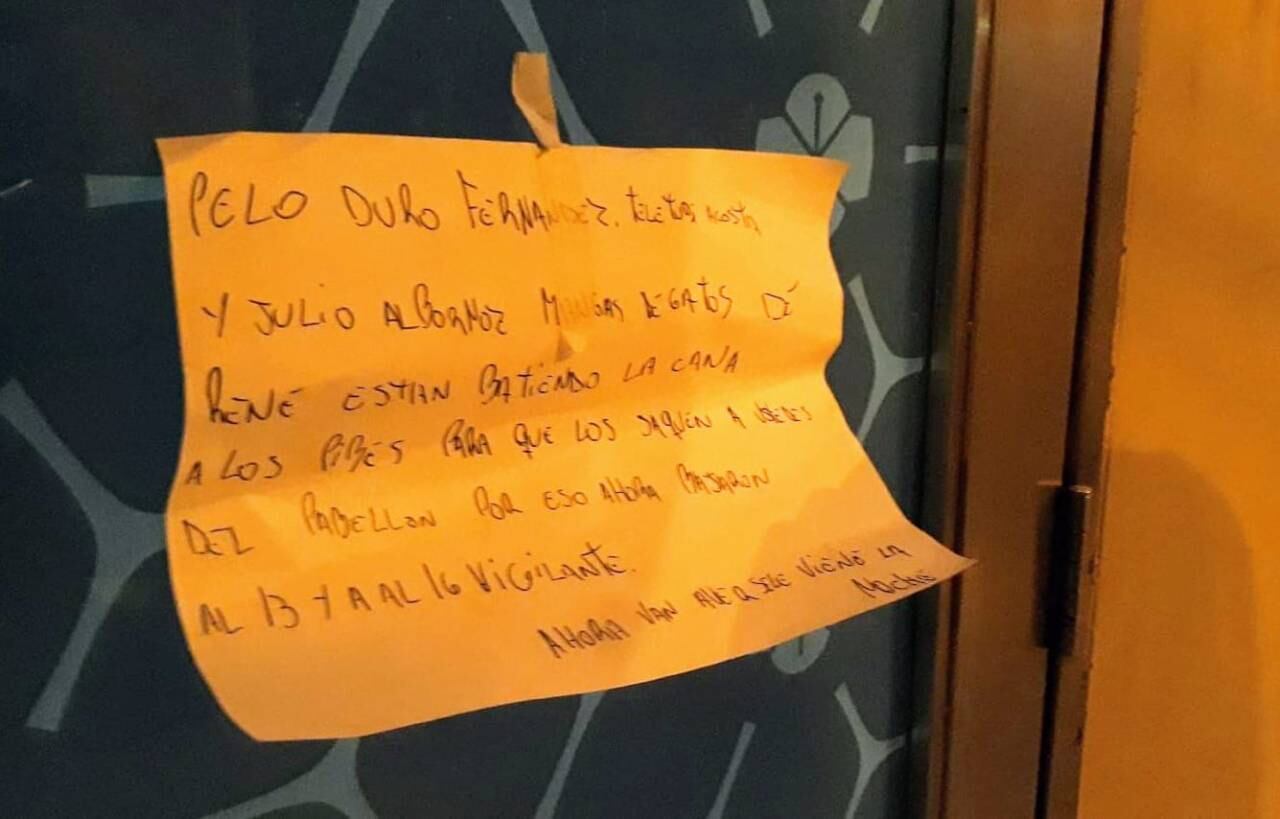 PELO DURO FERNANDEZ, TELETUBI ACOSTA
Y JULIO ALBORNOZ MANGAS DE GATOS DE
RENE ESTAN BATIENDO LA CANA
A LOS PIBES PARA QUE LOS SAQUEN A USTEDES
DEL PABELLON POR ESO AHORA BAJARON
AL 13 Y A AL 16 VIGILANTE.
AHORA VAN AVER SI SELE VIENE LA
NOCHE